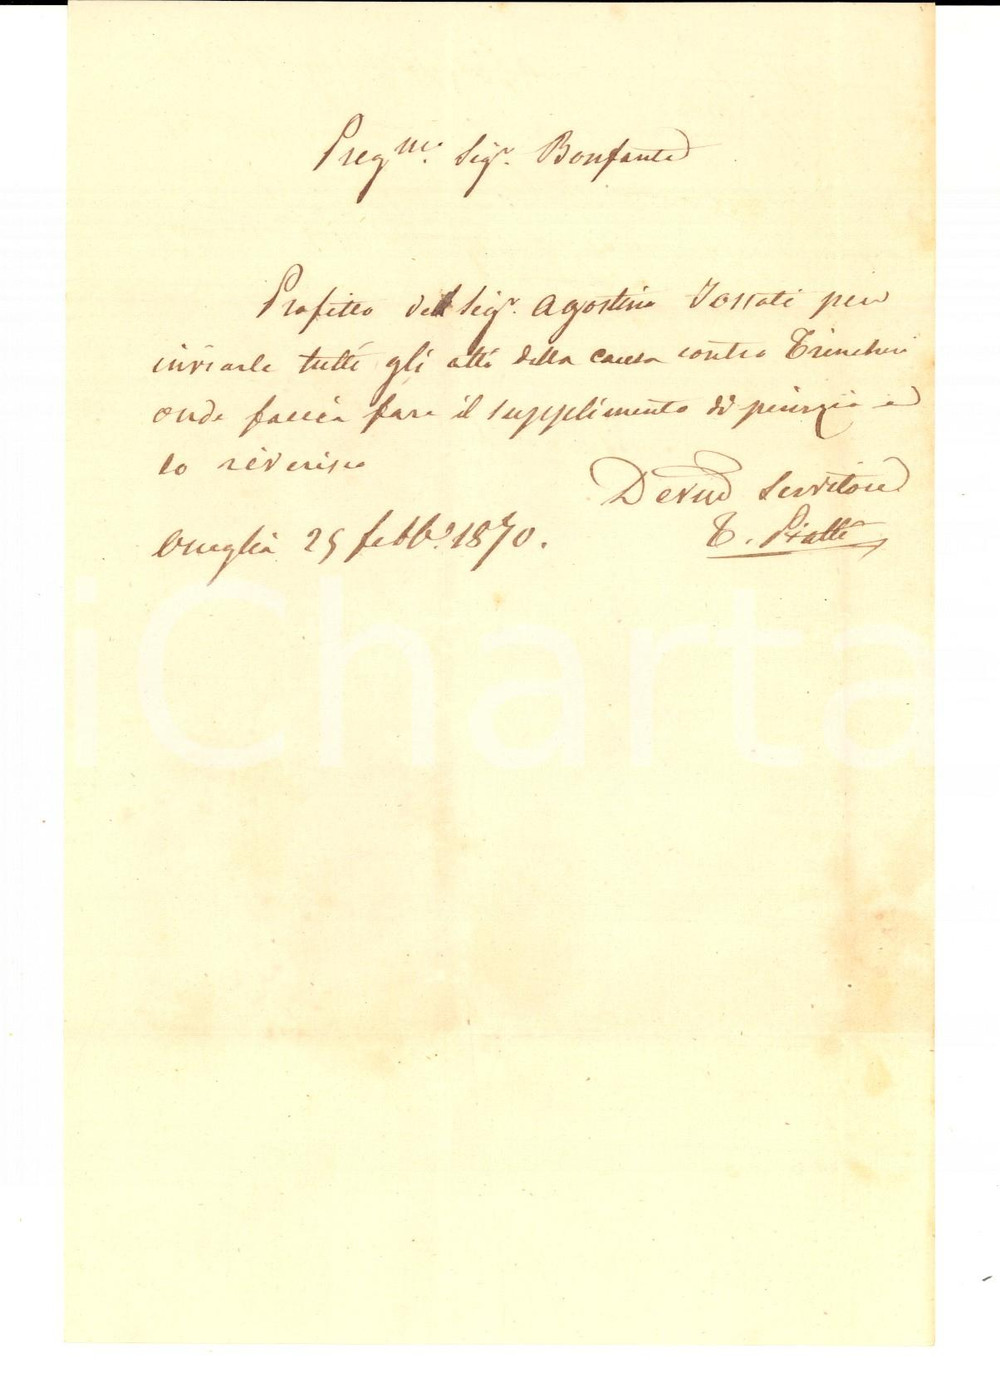 Preg.mo Sig.r Bonfante
Profitto del Sig.r Agostino Tossati per
inviarle tutti gli atti della causa contro Trincheri
onde faccia fare il supplimento di perizia ed
lo riverisco
Dev.mo Servitore
Oneglia 25 febb.o 1870.
iCharta